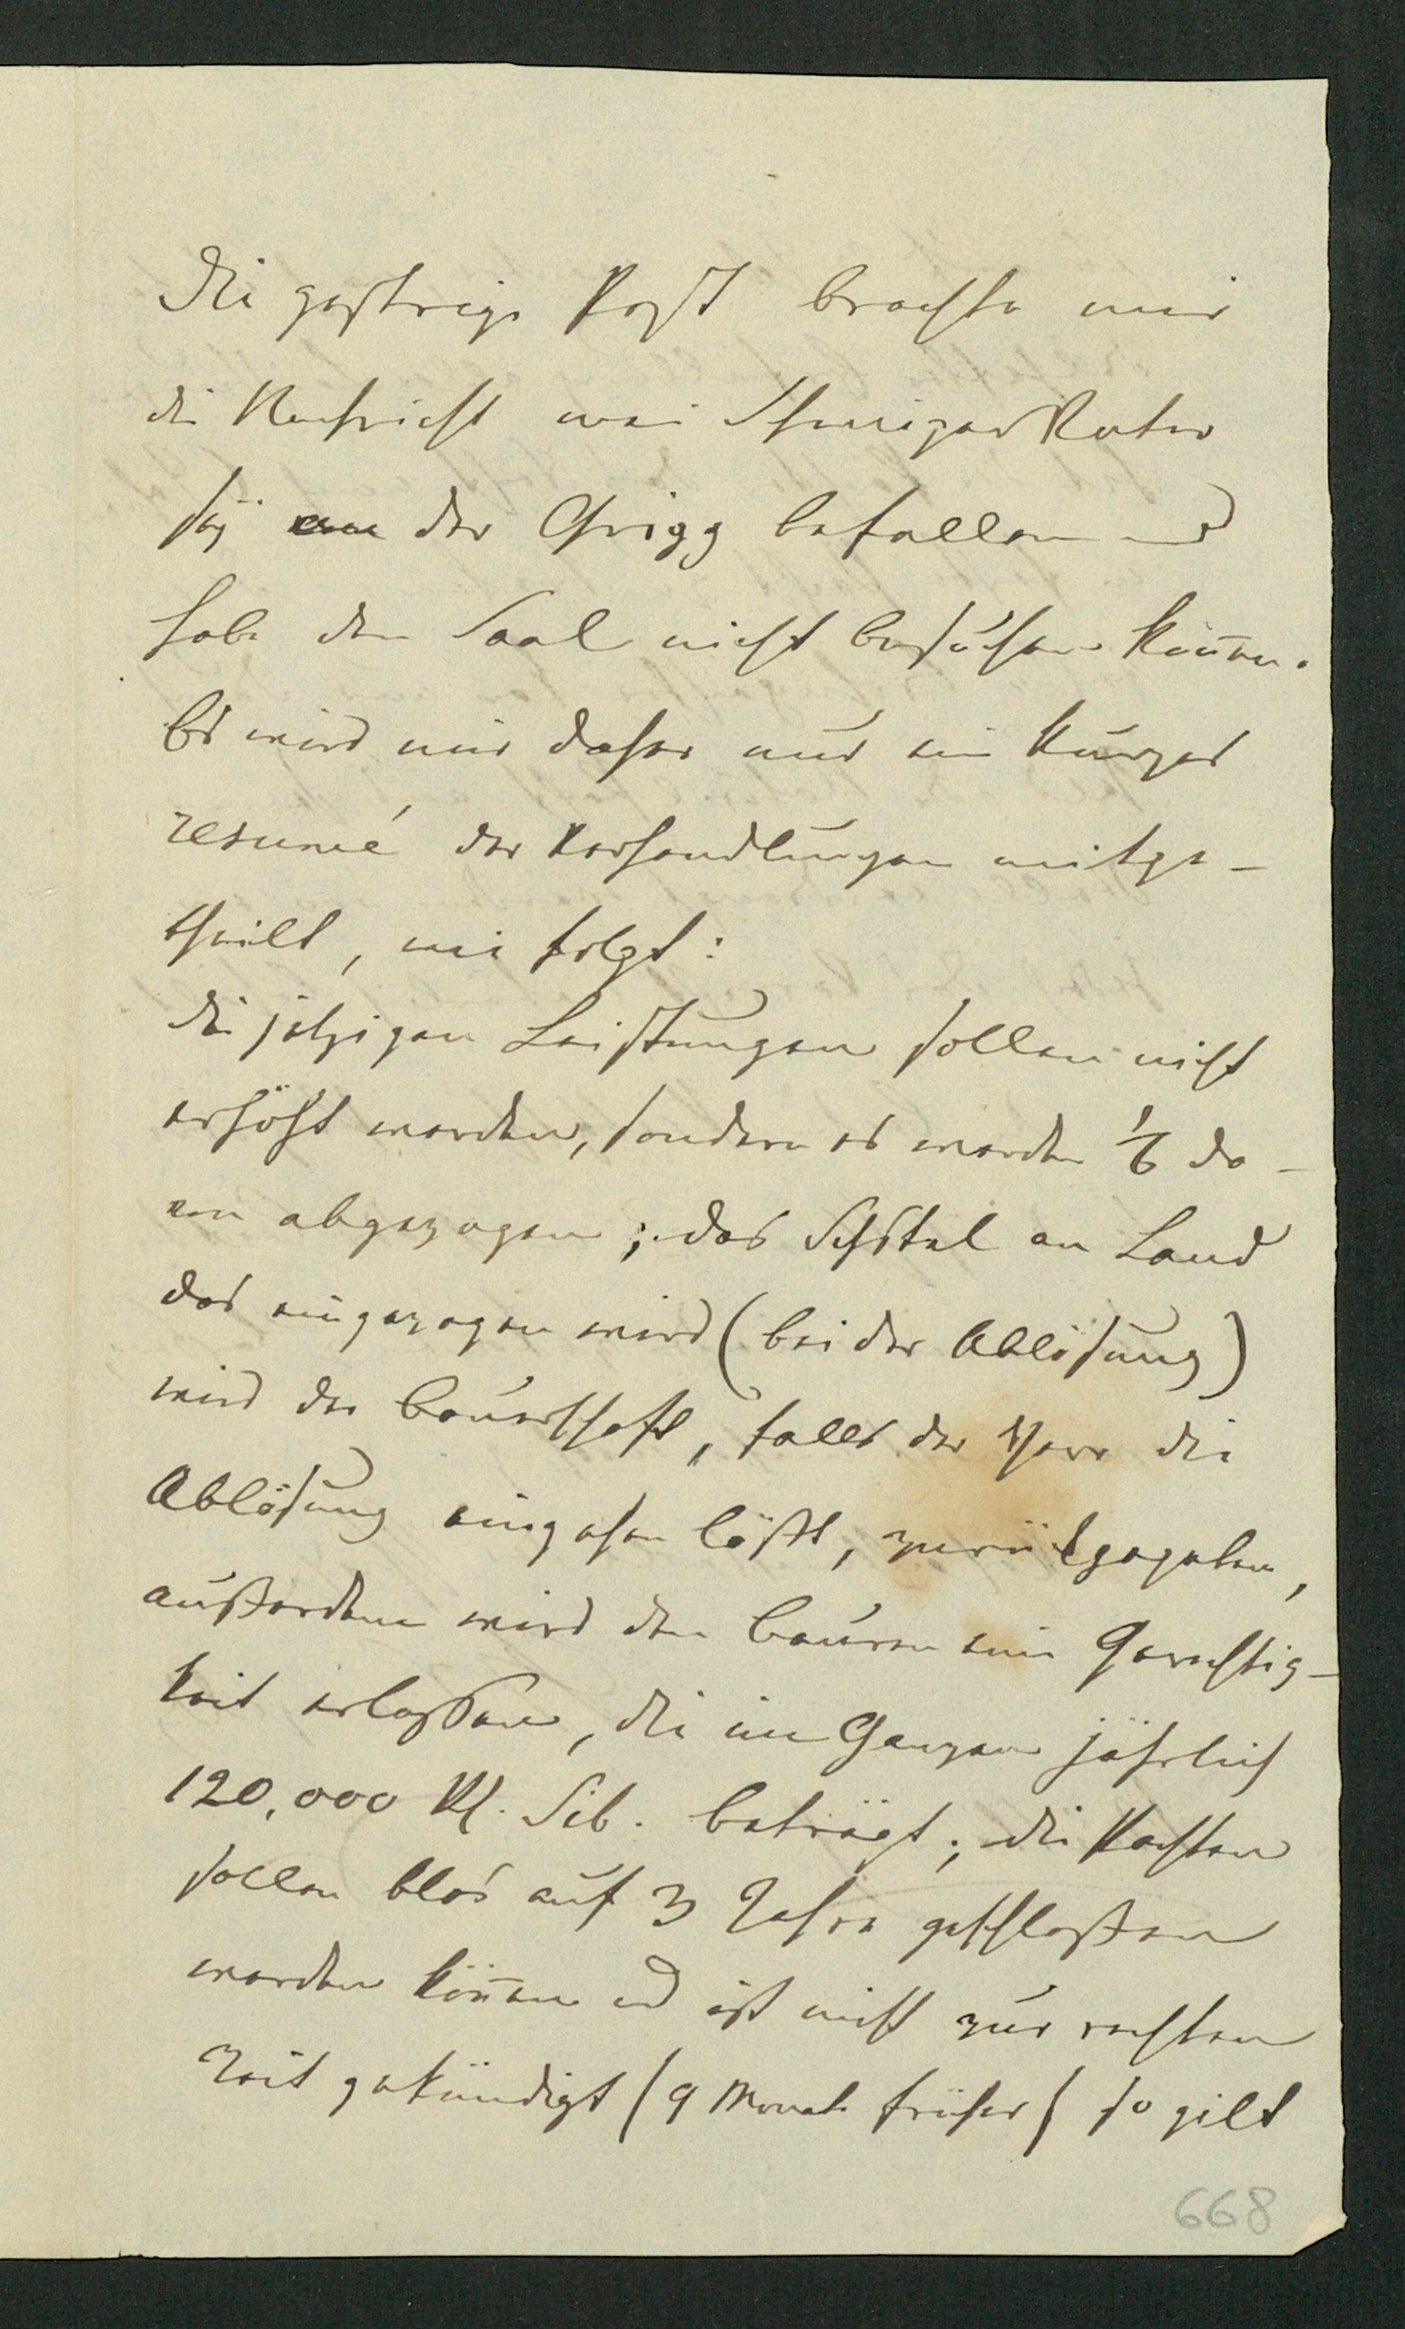 Die gestrige Post brachte mir
die Nachricht mein Vater
sey an der Gripp befallen und
habe den Saal nicht besuchen können.
Es wird mir daher nur ein kurzes
resumé der Verhandlungen mitge-
theilt, wie folgt:
Die jetzigen Leistungen sollen nicht
erhöht werden, sondern es werden 1/6 da-
von abgezogen; das Sechstel an Land
das eingezogen wird (bei der Ablösung)
wird der Bauerschaft, falls der Herr die
Ablösung eingehen läßt, zurükgegeben,
außerdem wird den Bauern eine Gerechtig-
keit erlaßen, die im Ganzen jährlich
120,000 Rl. Silb. beträgt; die Pachten
sollen blos auf 3 Jahre geschloßen
werden können und ist nicht zur rechten
Zeit gekündigt (9 Monate früher) so gilt
668